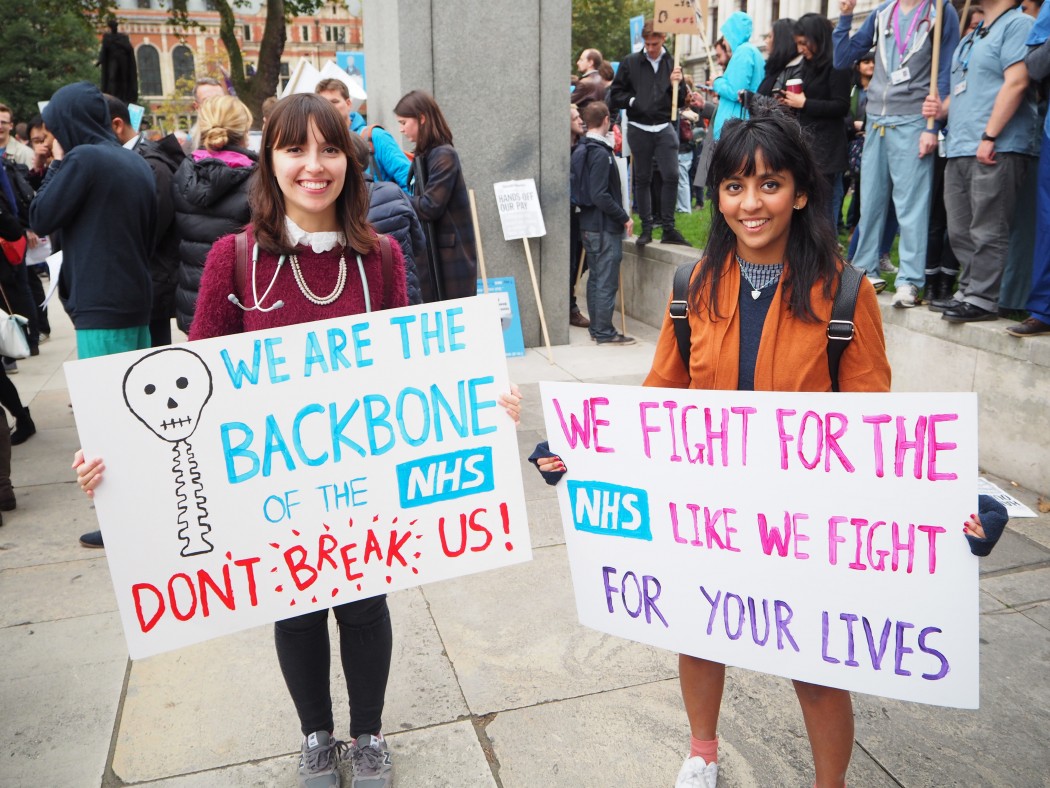 WE ARE THE
BACKBONE
OF THE NHS
DON'T BREAK US!
WE FIGHT FOR THE
NHS LIKE WE FIGHT
FOR YOUR LIVES
HANDS OFF
OUR PAY